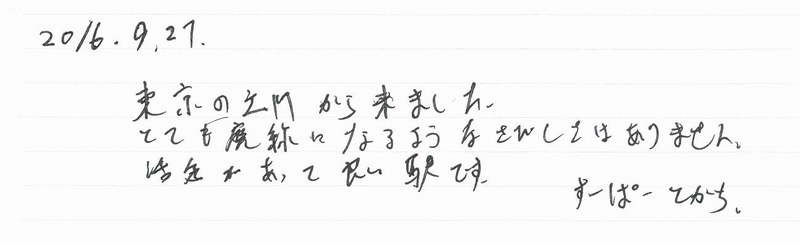 2016.9.27.
東京の立川から来ました。
とても廃線になるようなさびしさはありません。
活気があって良い駅です。
すーぱーとかち。